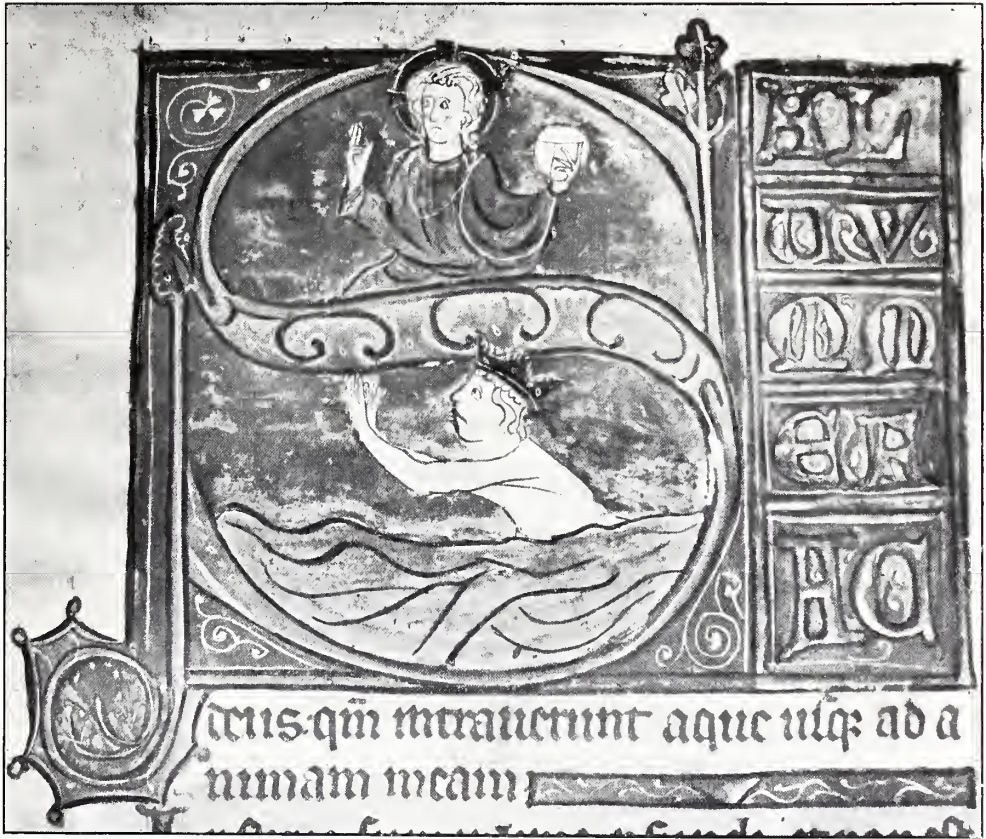 SAL
UV
MM
EF
AC
deus. qm̄ intrauerunt aque usq; ad a
nimam meam